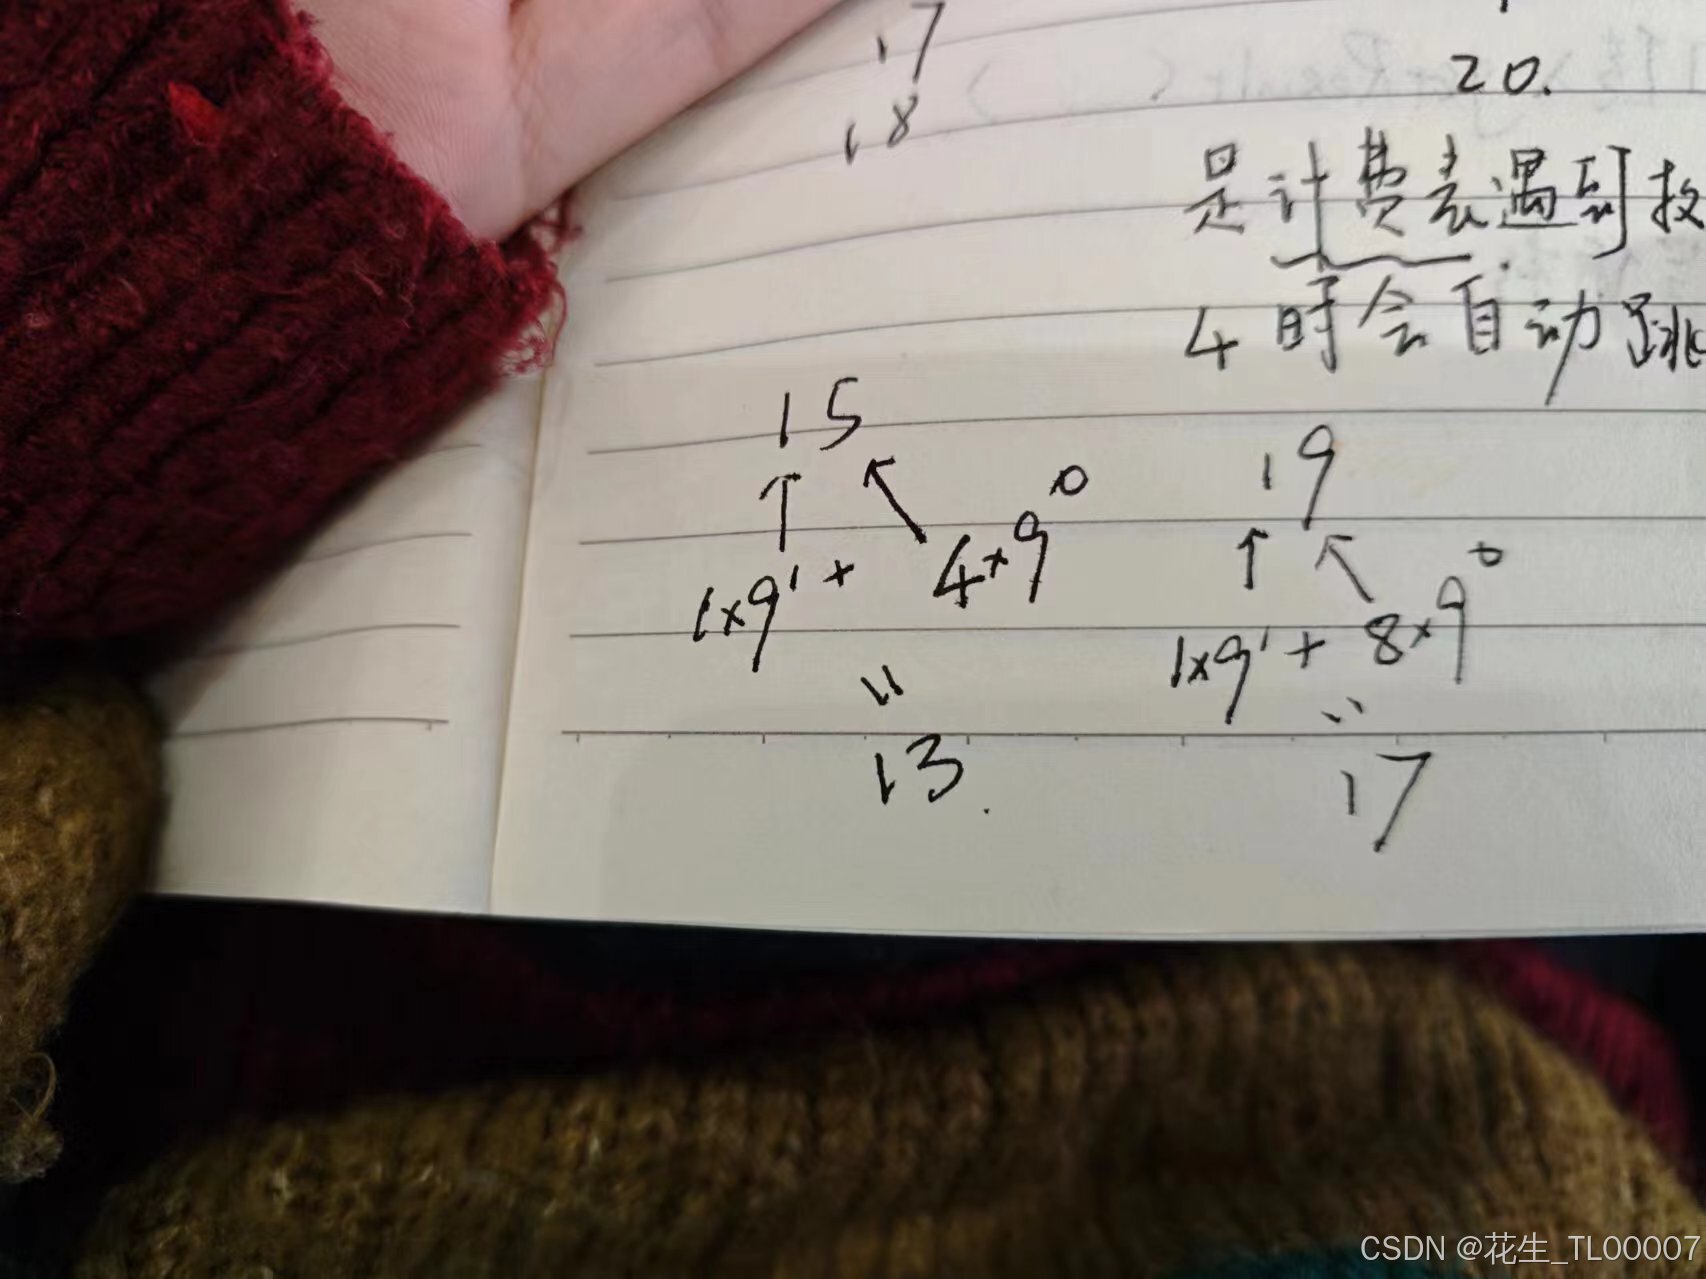 17
18
20.
是计费表遇到
4时会自动跳
15
1×9¹ + 4×9⁰
"
13.
19
1×9¹ + 8×9⁰
"
17
CSDN @花生_TL00007